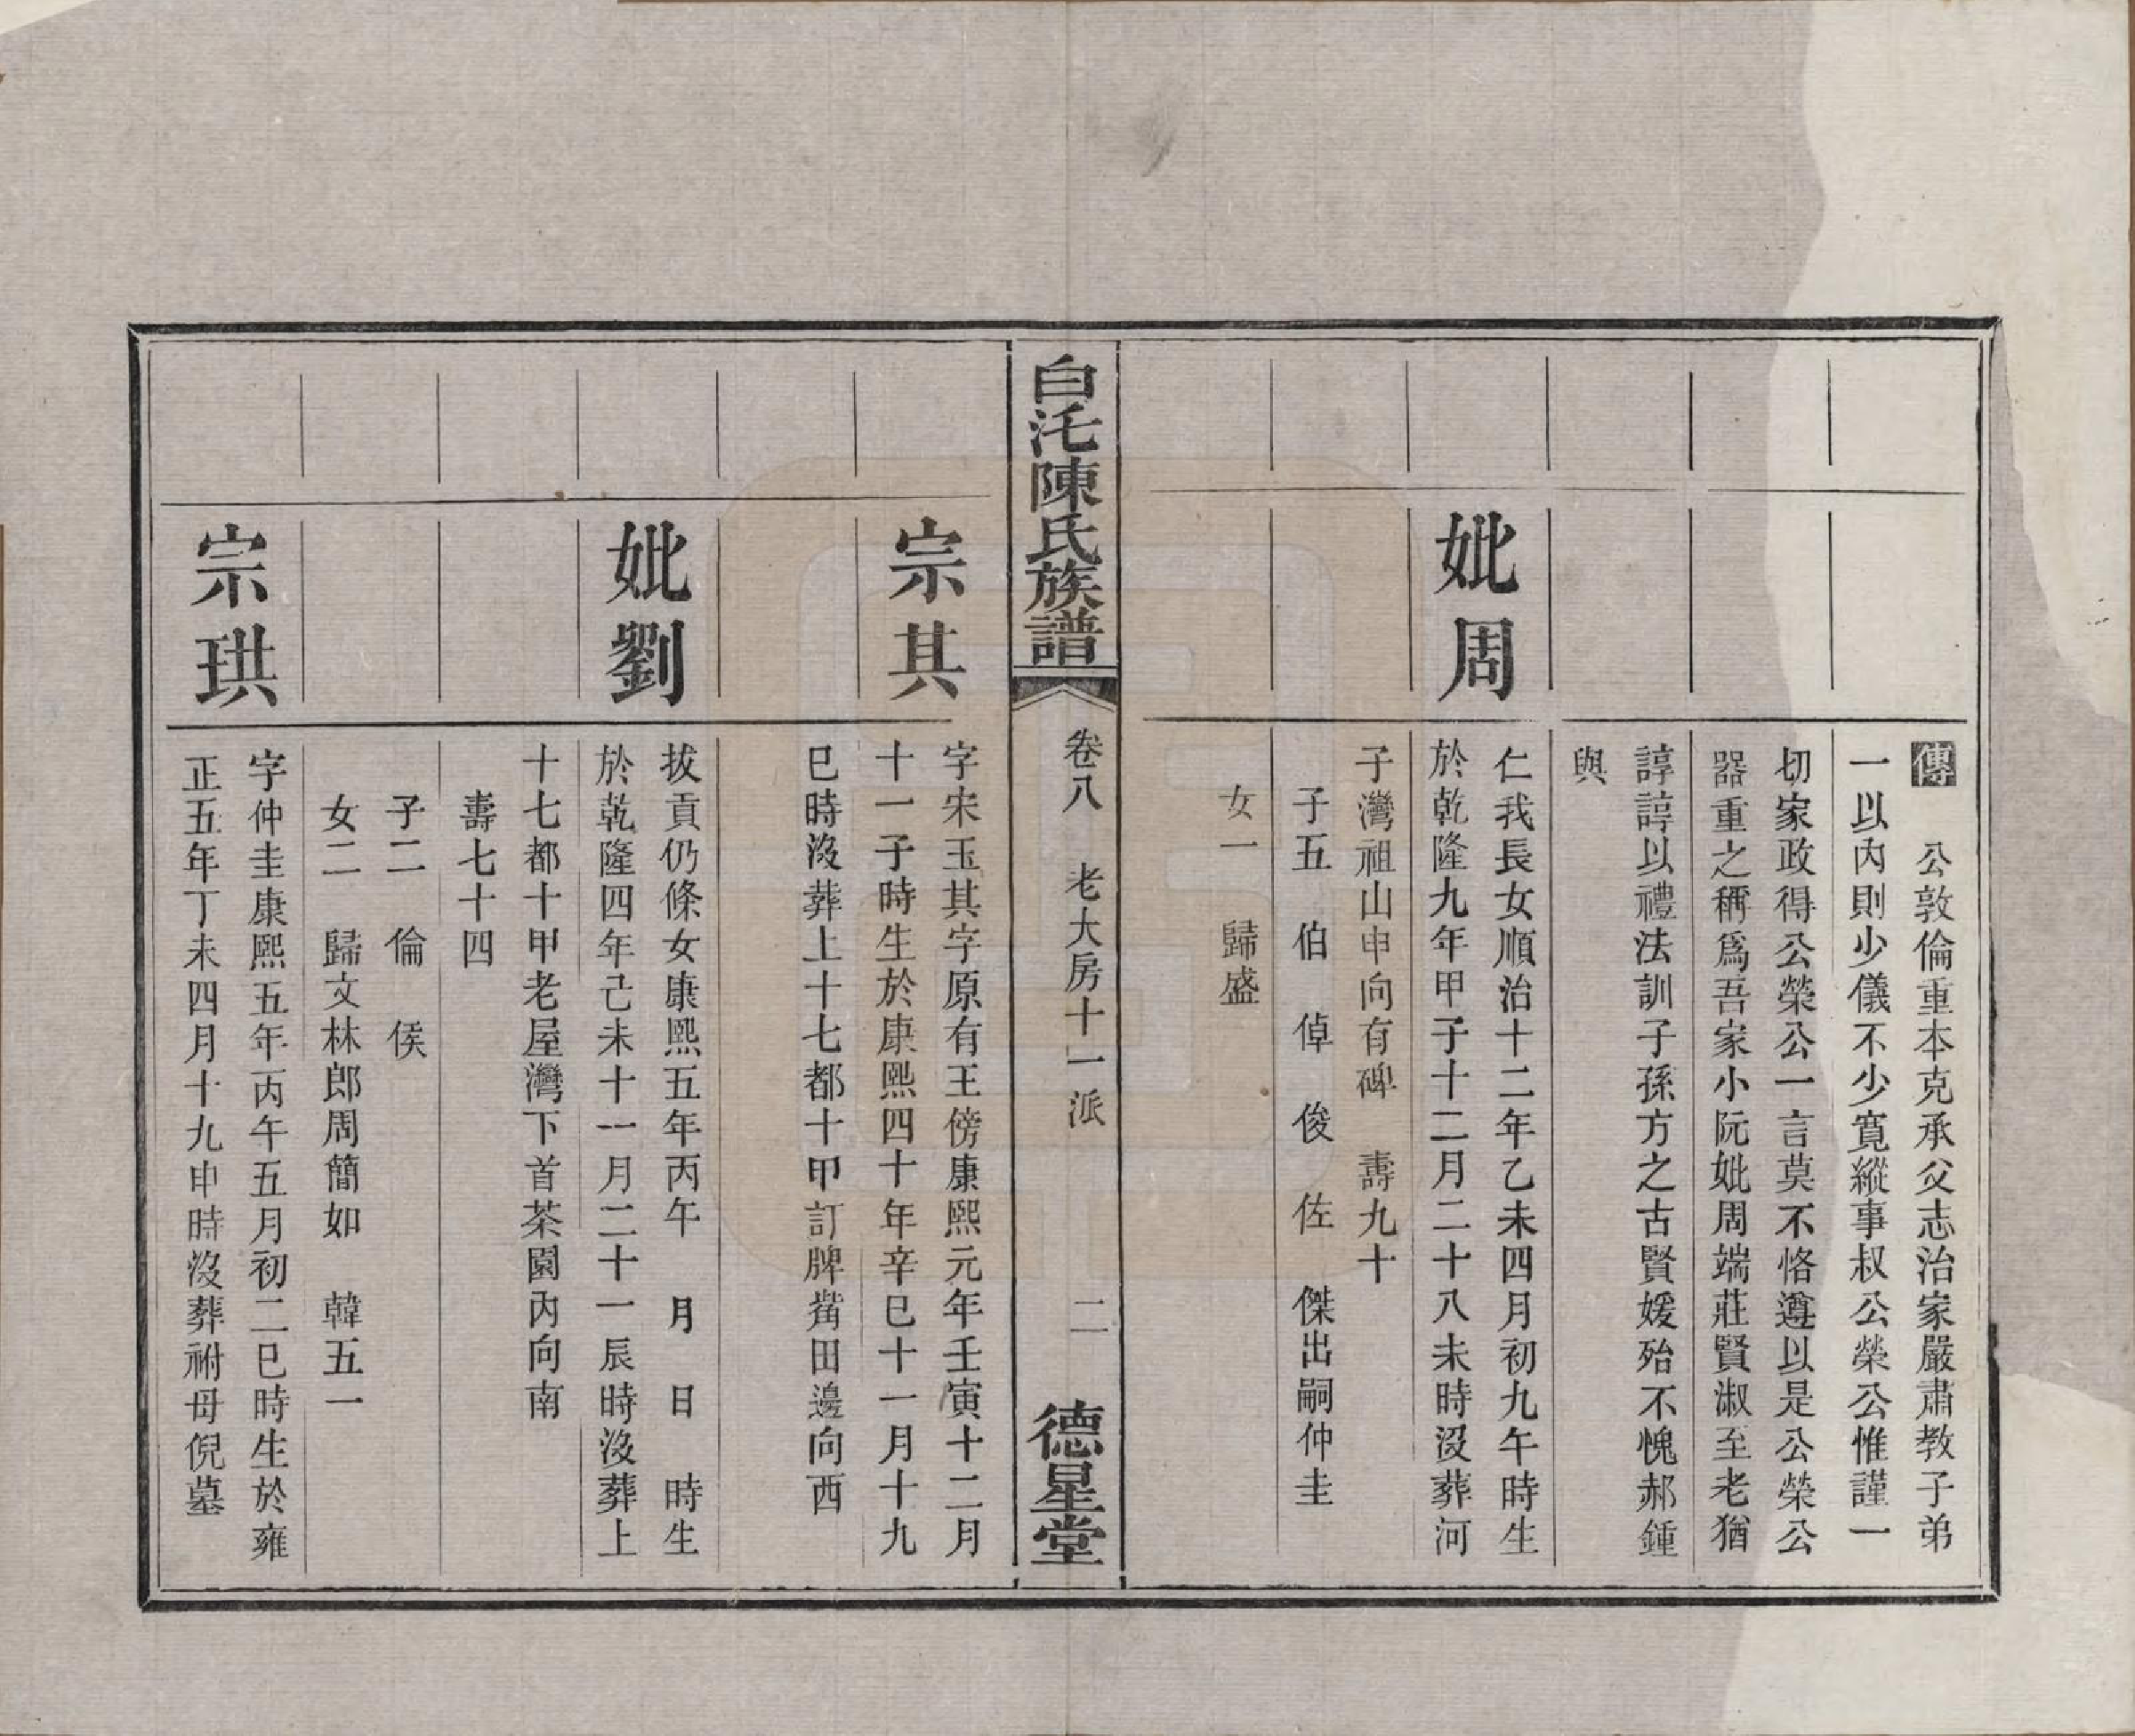 傳 公敦倫重本克承父志治家嚴肅教子弟
一以內則少儀不少寬縱事叔公榮公惟謹一
切家政得公榮公一言莫不恪遵以是公榮公
器重之稱爲吾家小阮妣周端莊賢淑至老猶
諄諄以禮法訓子孫方之古賢媛殆不愧郝鍾
與
妣周
仁我長女順治十二年乙未四月初九午時生
於乾隆九年甲子十二月二十八未時没葬河
子灣祖山申向有碑 壽九十
子五 伯 倬 俊 佐 傑出嗣仲圭
女一 歸盛
白沱陳氏族譜 卷八 老大房十一派 二 德星堂
宗其
字宋玉其字原有王傍康熙元年壬寅十二月
十一子時生於康熙四十年辛巳十一月十九
巳時没葬上十七都十甲訂牌嵅田邊向西
妣劉
拔貢仍絛女康熙五年丙午 月 日 時生
於乾隆四年己未十一月二十一辰時没葬上
十七都十甲老屋灣下首茶園內向南
壽七十四
子二 倫 侯
女二 歸文林郎周簡如 韓五一
宗珙
字仲圭康熙五年丙午五月初二巳時生於雍
正五年丁未四月十九申時没葬祔母倪墓